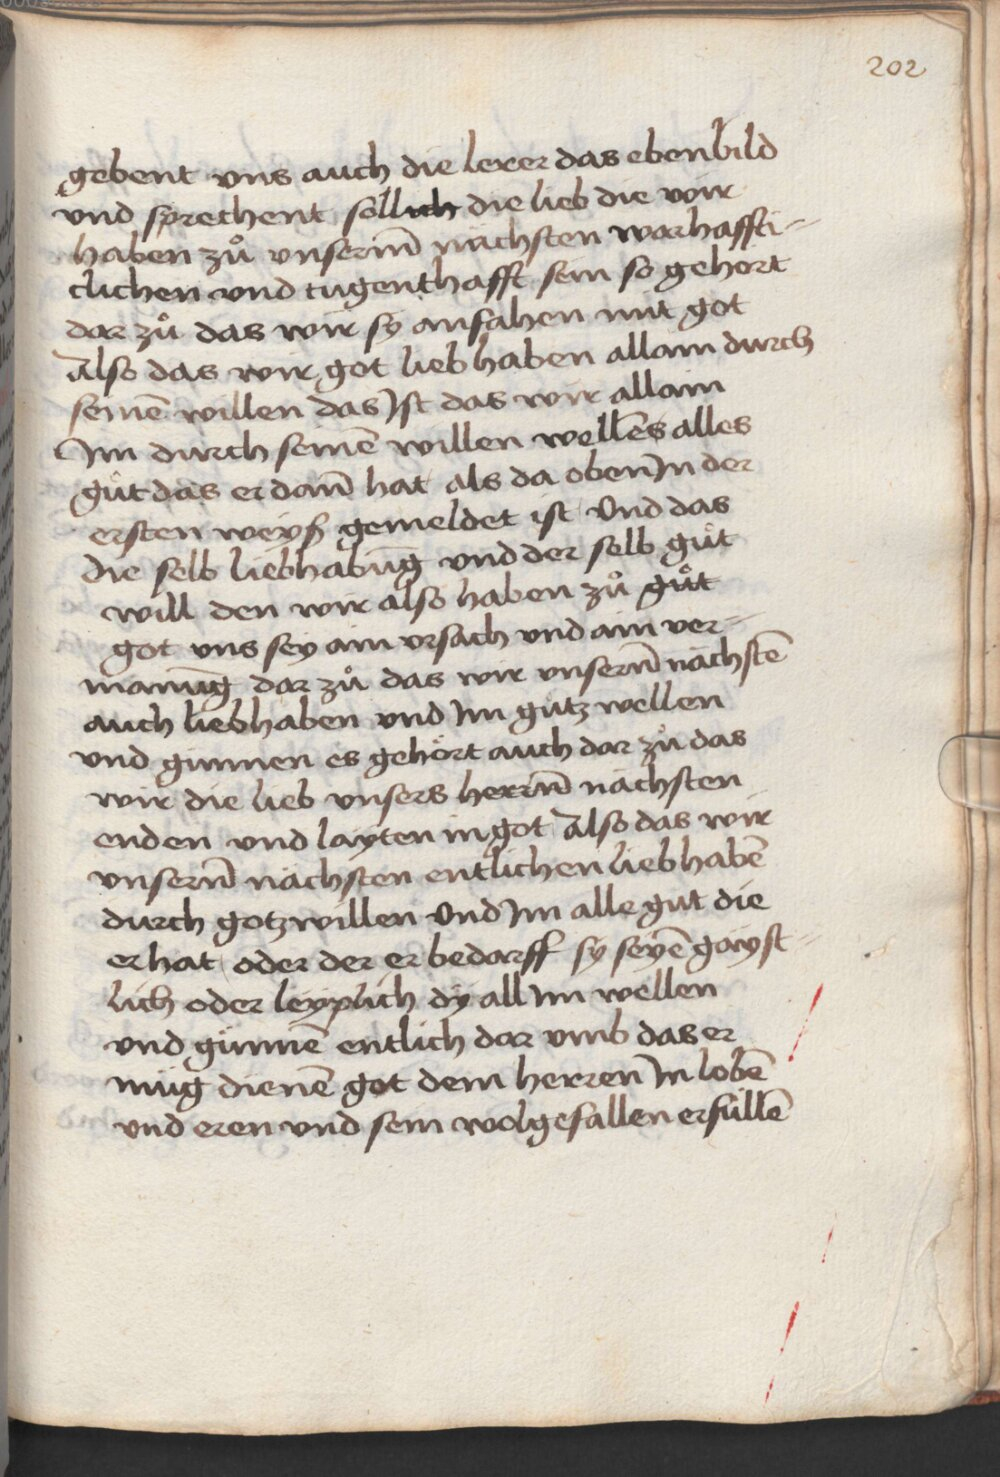 202
gebent vns auch die lerer das ebenbild
vnd sprechent sollich die lieb die wir
haben zů vnserm̄ nächsten warhaffti-
clichen vnd tugenthafft sein so gehort
dar zů das wir sy anfahen mit got
Also das wir got lieb haben allain durch
seinē willen das Ist das wir allain
Im durch seinē willen wellēs alles
gůt das er dan̄ hat als da oben In der
ersten weyß gemeldet ist Vnd das
die selb liebhabūg vnd der selb gůt
will den wir also haben zů gůt
got vns sey ain vrsach vnd ain ver-
manūg dar zů das wir vnsern̄ nächstē
auch liebhaben vnd Im gutz wellen
vnd günnen es gehört auch dar zů das
wir die lieb vnsers herrn̄ nächsten
enden vnd layten in got Also das wir
vnsern̄ nächsten entlichen lieb habē
durch gotz willen Vnd Im alle gut die
er hat oder der er bedarff sy seyē gayst-
lich oder leyplich dy all Im wellen
vnd günnē entlich dar vmb das er
müg dienē got dem herren In lobē
vnd eren vnd sein wolgefallen erfüllē